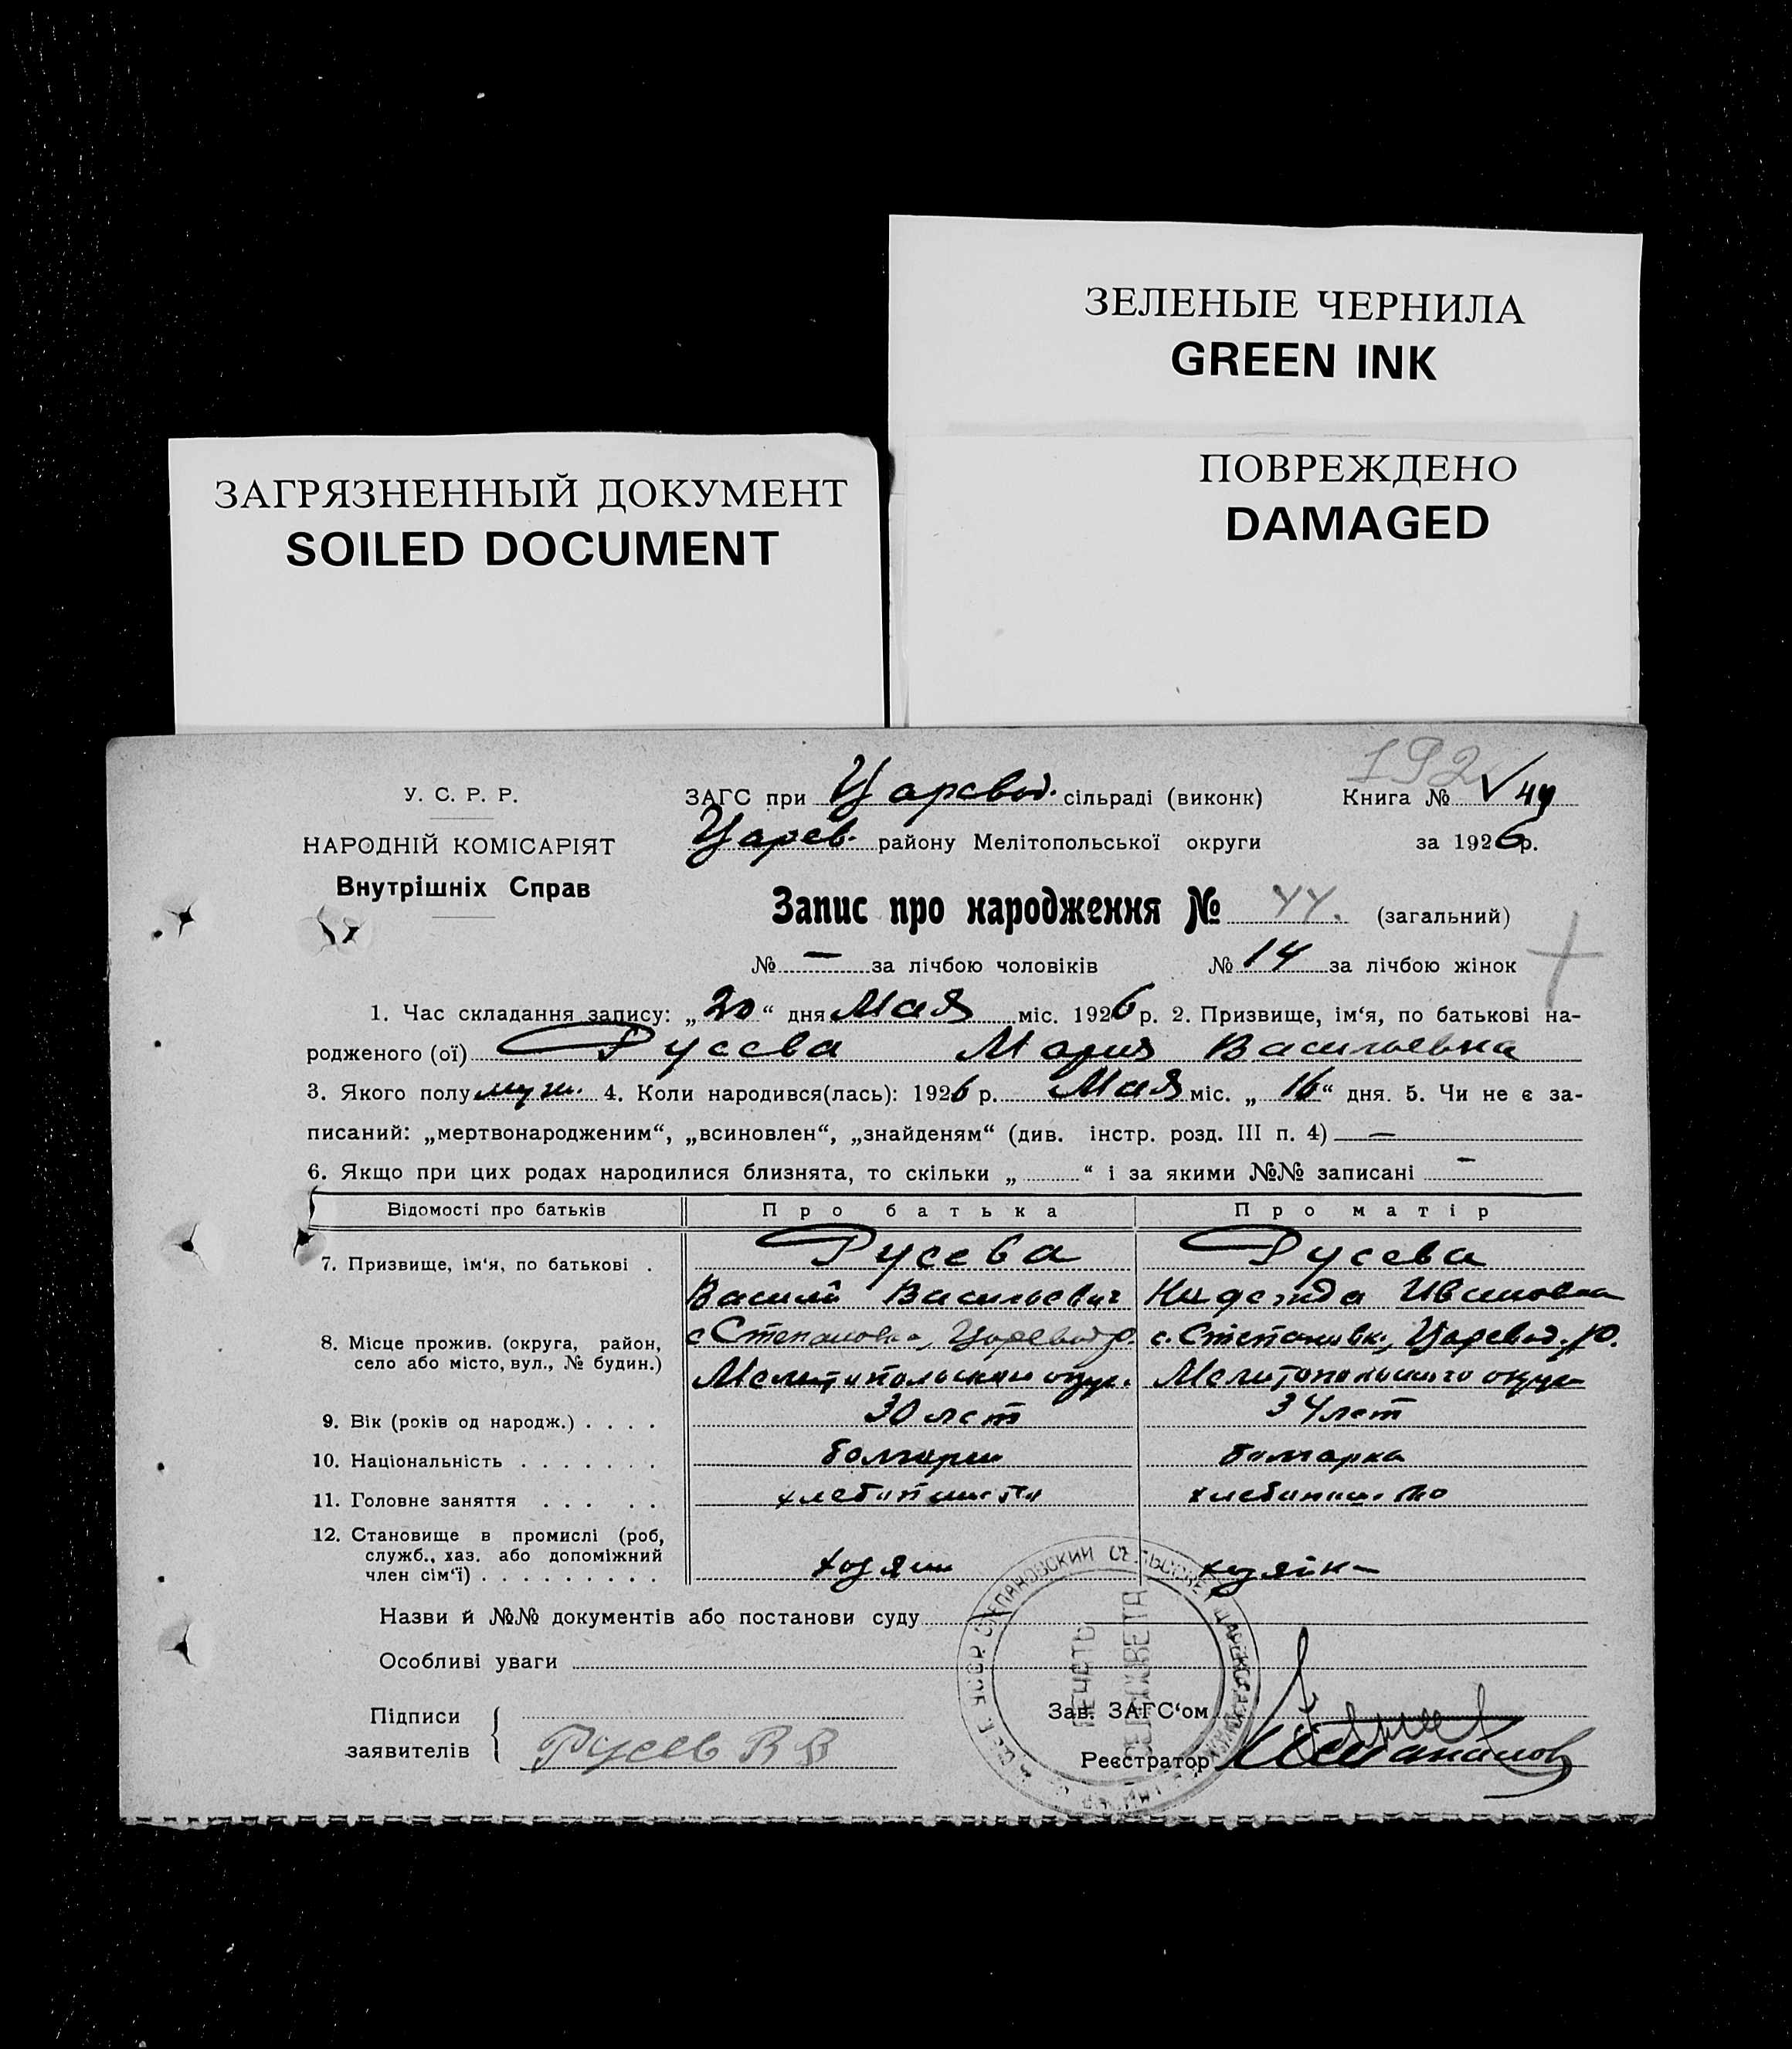 ЗЕЛЕНЫЕ ЧЕРНИЛА
GREEN INK
ЗАГРЯЗНЕННЫЙ ДОКУМЕНТ
SOILED DOCUMENT
ПОВРЕЖДЕНО
DAMAGED
192
У. С. Р. Р.
НАРОДНІЙ КОМІСАРІЯТ
Внутрішніх Справ
ЗАГС при Царевод. сільраді (виконк) Книга № V 44
Царев. району Мелітопольської округи за 1926р.
Запис про народження № 44. (загальний)
№ — за лічбою чоловіків № 14 за лічбою жінок
1. Час складання запису: „20“ дня Мая міс. 1926 р. 2. Призвище, ім‘я, по батькові на-
родженого (ої) Русева Мария Васильевна
3. Якого полу муж. 4. Коли народився(лась): 1926 р. Мая міс. „16“ дня. 5. Чи не є за-
писаний: „мертвонародженим“, „всиновлен“, „знайденям“ (див. інстр. розд. III п. 4) —
6. Якщо при цих родах народилися близнята, то скільки „ “ і за якими №№ записані —
Відомості про батьків Про батька Про матір
7. Призвище, ім‘я, по батькові . Русева Русева
Василий Васильевич Надежда Ивановна
8. Місце прожив. (округа, район, село або місто, вул., № будин.) с Степановка, Царевод р. с. Степановк., Царевод. р.
Мелитопольскои округ. Мелитопольского округа
9. Вік (років од народж.) . . . . 30 лет 34 лет
10. Національність . . . . . . . болгарин болгарка
11. Головне заняття . . . . . хлебопашество хлебопашество
12. Становище в промислі (роб, служб., хаз. або допоміжний член сім‘ї) . . . . . . . . . хозяин хозяйка
Назви й №№ документів або постанови суду
Особливі уваги
Підписи
заявителів Русев В В
Зав. ЗАГС‘ом
Реєстратор
ПЕЧАТЬ
СЕЛЬСОВЕТА
УССР СТЕПАНОВСКИИ СЕЛЬСКИЙ